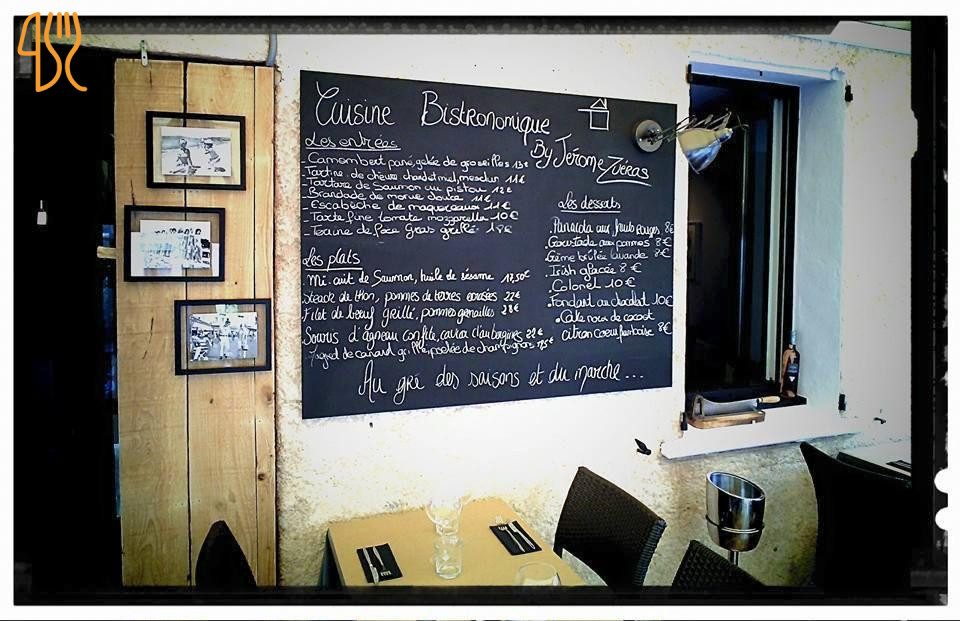 Cuisine Bistronomique
By Jérôme
Les entrées
- Camembert pané, gelée de groseilles 13€
- Tartine de chèvre chaud et miel, mesclun 11€
- Tartare de Saumon au pistou 12€
- Brandade de morue douce 11€
- Escabèche de maquereaux 11€
- Tarte fine tomate mozzarella 10€
- Terrine de foie gras grillé 18€
Les plats
. Mi-cuit de Saumon, huile de sésame 17,50€
. Steack de thon, pommes de terres écrasées 22€
. Filet de boeuf grillé, pommes grenailles 28€
Souris d'agneau confite, caviar d'aubergines 22€
Magret de canard grillé, poêlée de champignons
Les desserts
. Panacota aux fruits rouges 8€
. Croustade aux pommes 8€
. Crème brûlée lavande 8€
. Irish glacée 8€
. Colonel 10€
. Fondant au chocolat 10€
. Cake noix de coco et
citron coeur framboise 8€
Au gré des saisons et du marché...